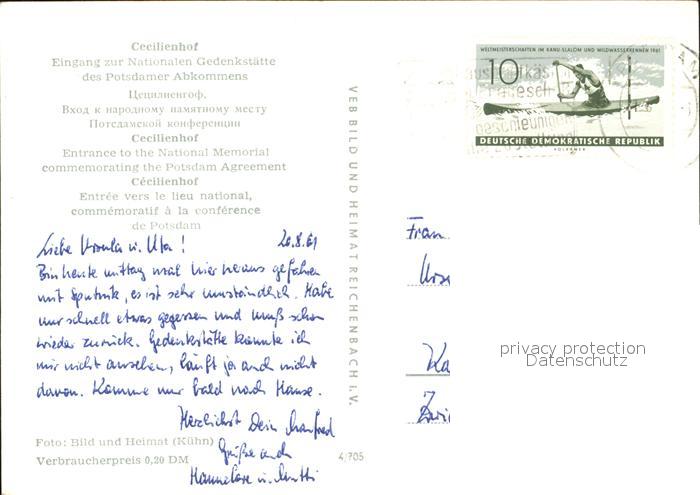 Cecilienhof
Eingang zur Nationalen Gedenkstätte
des Potsdamer Abkommens
Цецилиенгоф.
Вход к народному памятному месту
Потсдамской конференции
Cecilienhof
Entrance to the National Memorial
commemorating the Potsdam Agreement
Cécilienhof
Entrée vers le lieu national,
commémoratif à la conférence
de Potsdam
VEB BILD UND HEIMAT REICHENBACH i. V.
WELTMEISTERSCHAFTEN IM KANU-SLALOM UND WILDWASSERRENNEN 1961
10
DEUTSCHE DEMOKRATISCHE REPUBLIK
Liebe Ursula u. Uta! 20.8.61
Bin heute mittag mal hier heraus gefahren
mit Sputnik, es ist sehr umständlich. Habe
nur schnell etwas gegessen und muß schon
wieder zurück. Gedenkstätte konnte ich
mir nicht ansehen, läuft ja auch nicht
davon. Komme nur bald nach Hause.
Herzlichst Dein Manfred
Grüße auch
Hannelore u. Mutti
Frau
Urs
Ka
Zwi
privacy protection
Datenschutz
Foto: Bild und Heimat (Kühn)
Verbraucherpreis 0,20 DM
4/705